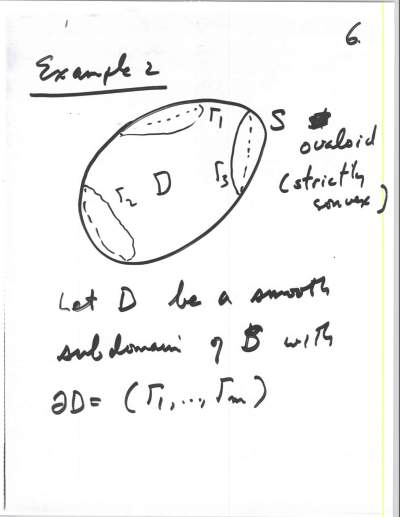 6.
Example 2
Γ1
S
ovaloid
(strictly
convex)
D
Γ2
Γ3
Let D be a smooth
subdomain of S with
∂D = (Γ1, ..., Γm)